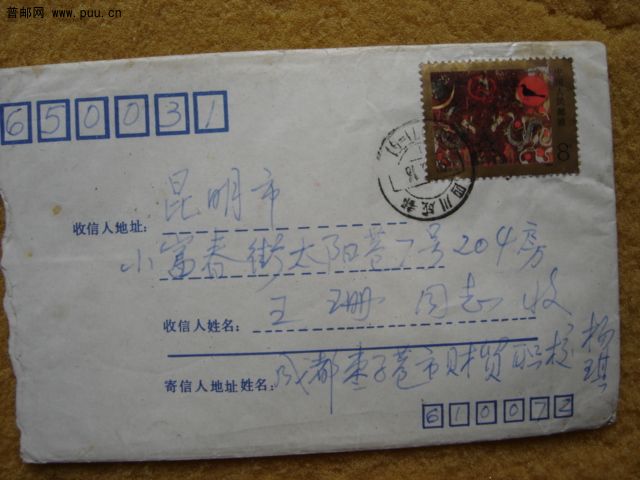 普邮网 www.puu.cn
650031
8
四川成都
昆明市
收信人地址:
小富春街太阳巷7号204房
收信人姓名: 王珊 同志收
寄信人地址姓名: 成都枣子巷市财贸职校 杨琪
610072